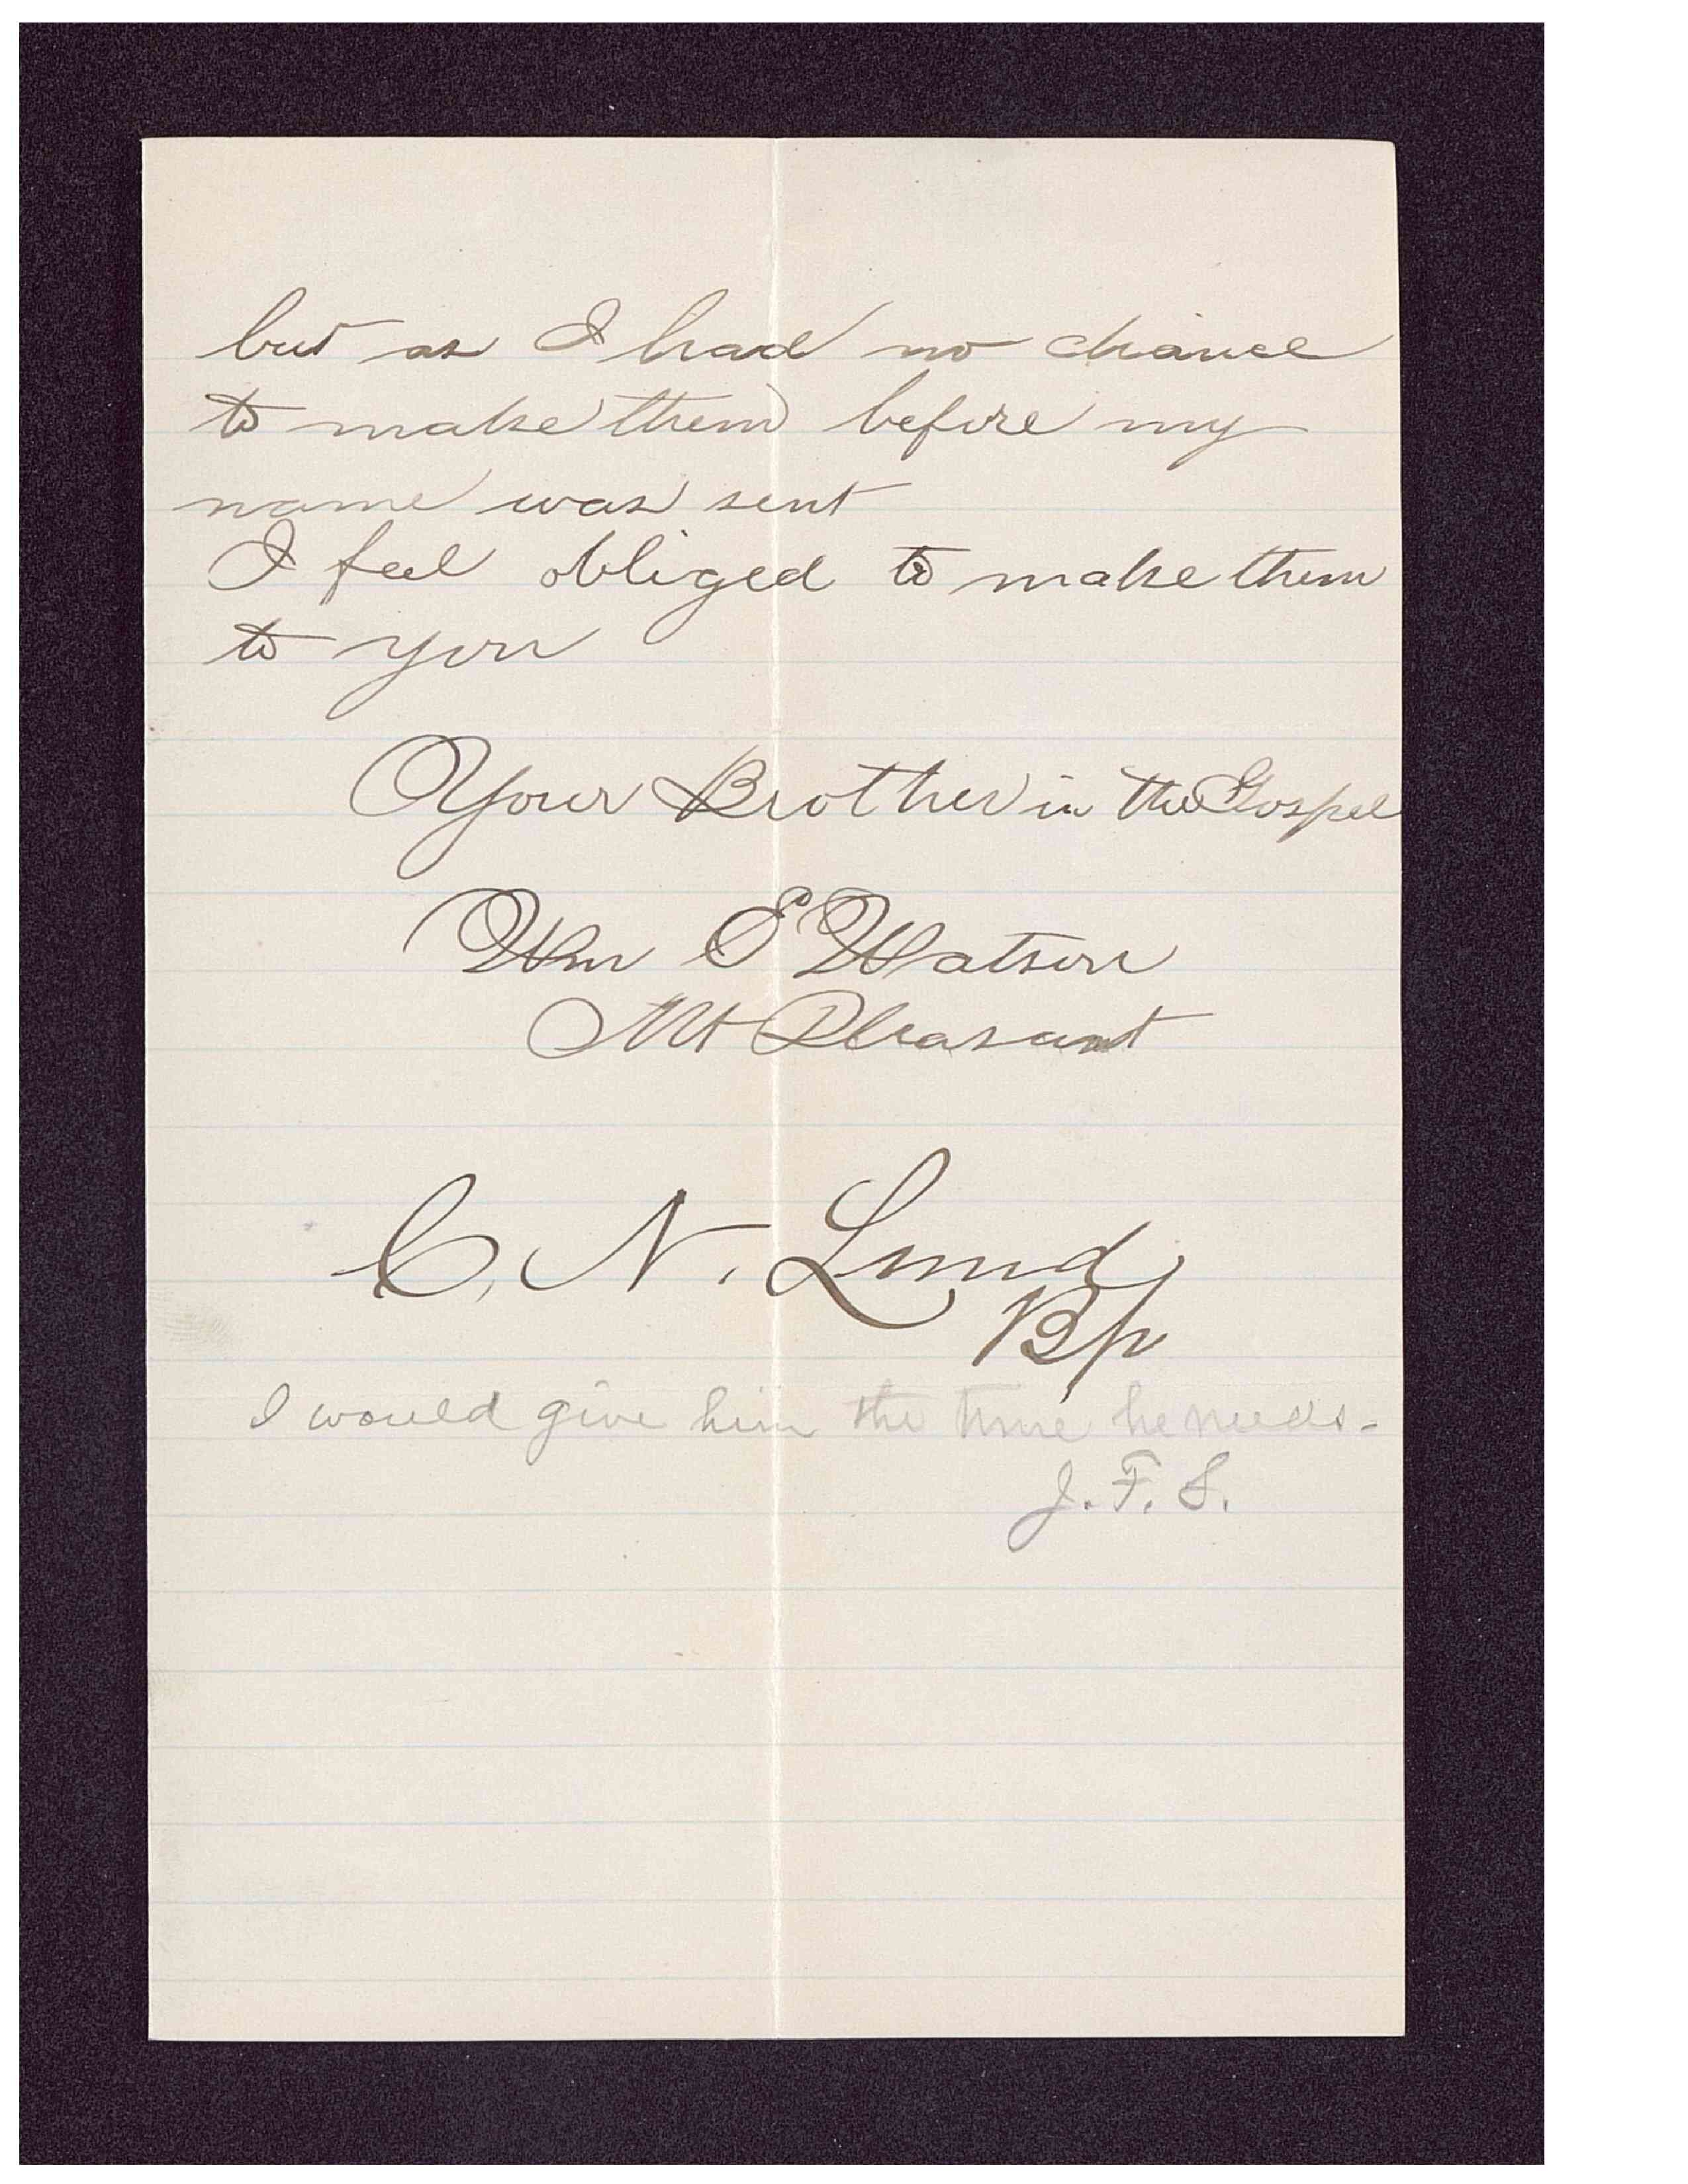 but as I had no chance
to make them before my
name was sent
I feel obliged to make them
to you
Your Brother in the Gospel
Wm E Watson
Mt Pleasant
C. N. Lund
Bp
I would give him the time he needs-
J. F. S.